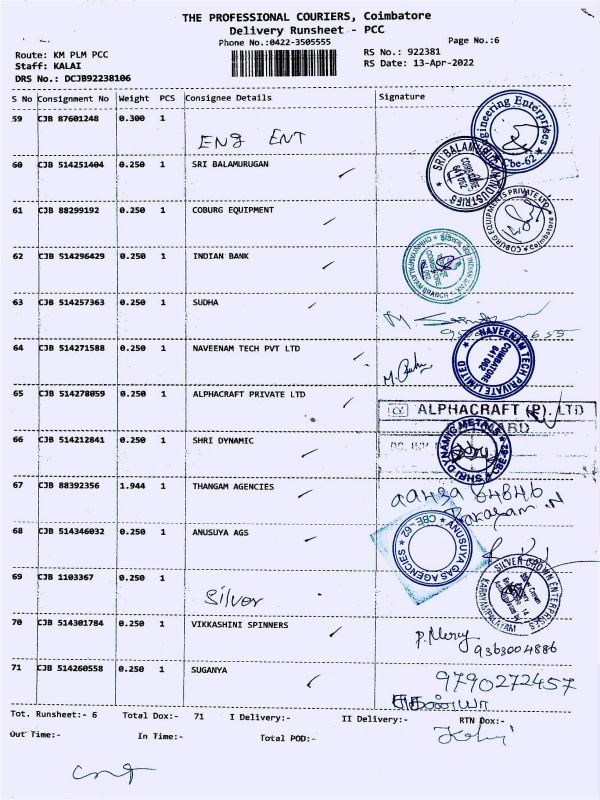 THE PROFESSIONAL COURIERS, Coimbatore
Delivery Runsheet - PCC
Phone No.:0422-3505555
Page No.:6
Route: KM PLM PCC
RS No.: 922381
Staff: KALAI
RS Date: 13-Apr-2022
DRS No.: DCJB92238106
S No Consignment No Weight PCS Consignee Details Signature
59 CJB 87601248 0.300 1
ENG ENT
Engineering Enterprises
Cbe-62
60 CJB 514251404 0.250 1 SRI BALAMURUGAN
SRI BALAMURUGAN INDUSTRIES
COIMBATORE
641 062
61 CJB 88299192 0.250 1 COBURG EQUIPMENT
COBURG EQUIPMENTS PRIVATE LTD
Coimbatore
62 CJB 514296429 0.250 1 INDIAN BANK
INDIAN BANK
CHINNIYAMPALAYAM BRANCH
63 CJB 514257363 0.250 1 SUDHA
64 CJB 514271588 0.250 1 NAVEENAM TECH PVT LTD
NAVEENAM TECH PRIVATE LIMITED
COIMBATORE
641 062
65 CJB 514278059 0.250 1 ALPHACRAFT PRIVATE LTD
ALPHACRAFT (P). LTD
66 CJB 514212841 0.250 1 SHRI DYNAMIC
SHRI DYNAMIC METALS
67 CJB 88392356 1.944 1 THANGAM AGENCIES
68 CJB 514346032 0.250 1 ANUSUYA AGS
ANUSUYA GAS AGENCIES
CBE - 62
69 CJB 1103367 0.250 1
Silver
SILVER CROWN ENTERPRISES
70 CJB 514301784 0.250 1 VIKKASHINI SPINNERS
P. Mercy
9363004886
71 CJB 514260558 0.250 1 SUGANYA
9790272457
Tot. Runsheet:- 6 Total Dox:- 71 I Delivery:- II Delivery:- RTN Dox:-
Out Time:- In Time:- Total POD:-